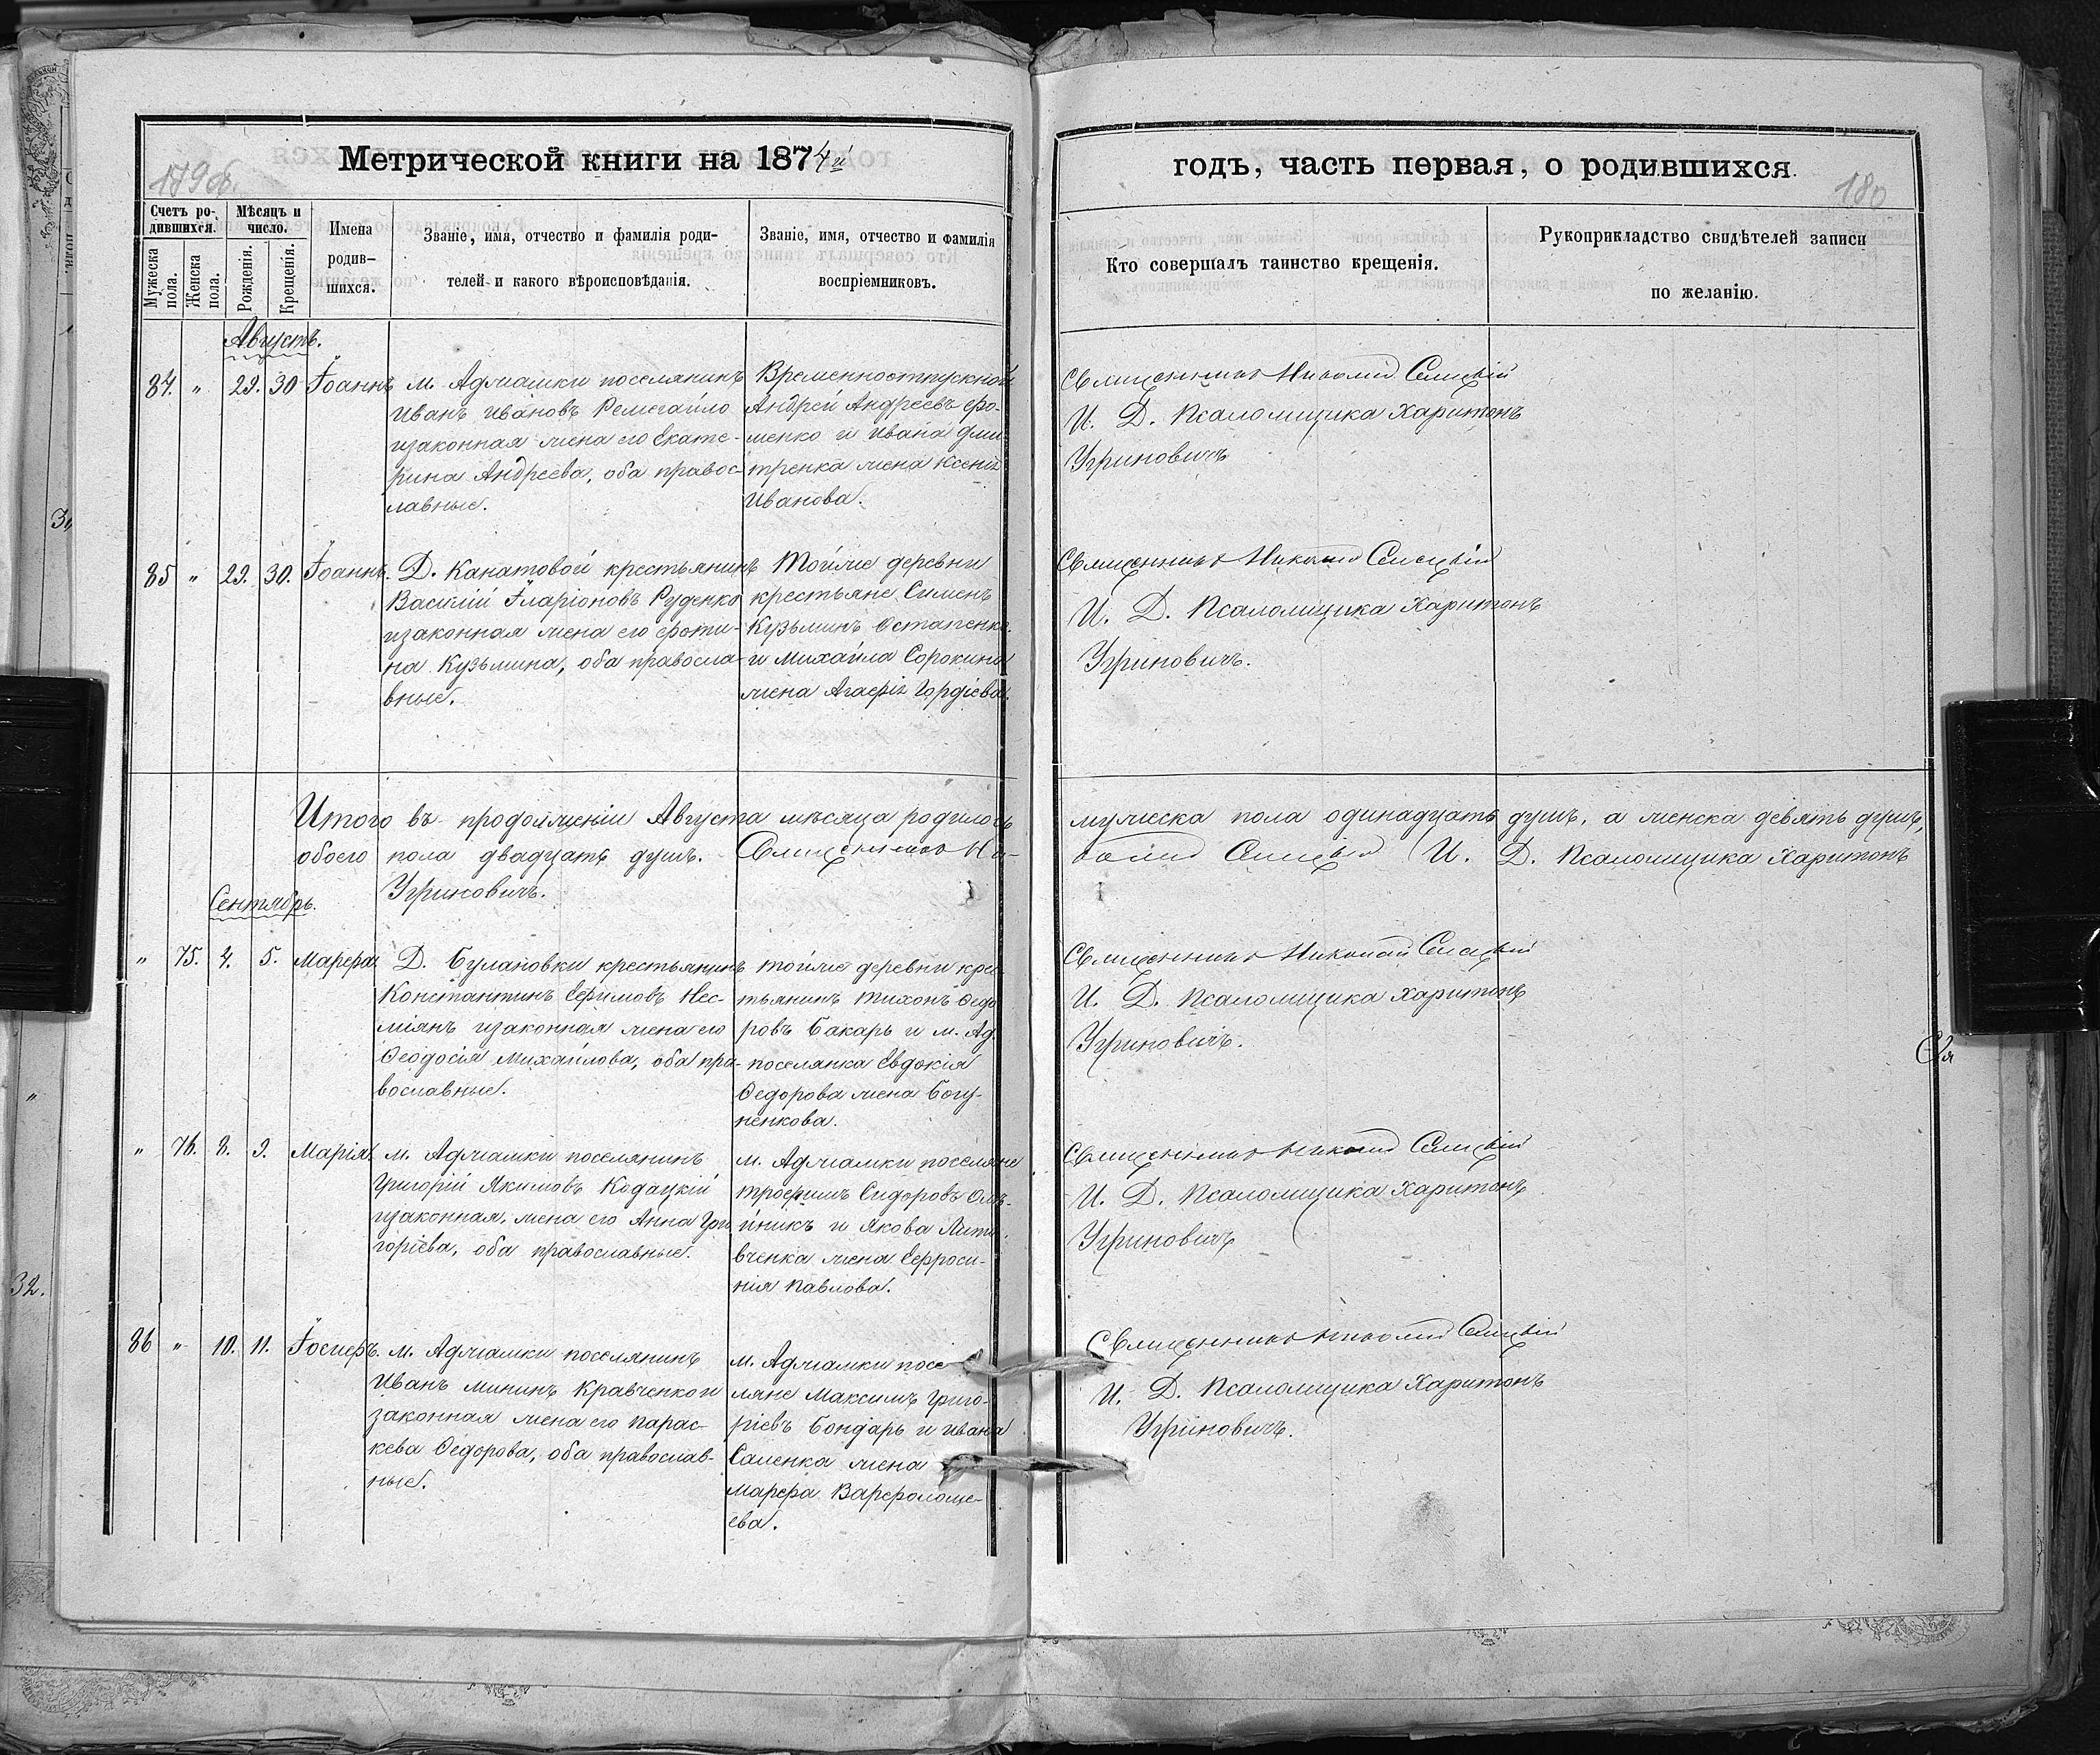 Метрической книги на 1874й
179об.
Счетъ ро-
дившихся.
Мужеска пола.
Женска пола.
Мѣсяцъ и
число.
Рожденія.
Крещенія.
Имена
родив-
шихся.
Званіе, имя, отчество и фамилія роди-
телей и какого вѣроисповѣданія.
Званіе, имя, отчество и фамилія
воспріемниковъ.
годъ, часть первая, о родившихся.
180
Кто совершалъ таинство крещенія.
Рукоприкладство свидѣтелей записи
по желанію.
Августъ.
84. " 29. 30 Іоаннъ
м. Аджамки поселянинъ
Иванъ Ивановъ
и законная жена его Екате-
рина Андреева, оба правос-
лавные.
Временноотпускной
Андрей Андреевъ Фо-
менко и Ивана Дми-
тренка жена Ксенія
Иванова.
Священникъ Николай
И. Д. Псаломщика Харитонъ
Угриновичъ
85 " 29. 30. Іоаннъ.
Д. Канатовой крестьянинъ
Василій Іларіоновъ Руденко
и законная жена его Фоти-
на Кузьмина, оба правосла-
вные.
Тойже деревни
крестьяне Сименъ
Кузьминъ Остапенко
и Михаила Сорокина
жена Агафія Гордіева.
Священникъ Николай
И. Д. Псаломщика Харитонъ
Угриновичъ.
Итого въ продолженіи Августа мѣсяца родилось мужеска пола одинадцать душъ, а женска девять душъ,
обоего пола двадцать душъ. Священникъ Ни-
колай И. Д. Псаломщика Харитонъ
Угриновичъ.
Сентябрь.
" 75. 4. 5. Марфа
Д. Булановки крестьянинъ
Константинъ Ефимовъ Нес-
міянъ и законная жена его
Ѳеодосія Михайлова, оба пра-
вославные.
тойже деревни крес-
тьянинъ Тихонъ Ѳедо
ровъ Бакаръ и м. Ад.
поселянка Евдокія
Ѳедорова жена Богу-
ненкова.
Священникъ Николай
И. Д. Псаломщика Харитонъ
Угриновичъ.
" 76. 8. 9. Марія
м. Аджамки поселянинъ
Григорій Якимовъ Кодацкій
и законная жена его Анна Гри
горіева, оба православные.
м. Аджамки поселяне
Трофимъ Сидоровъ Олѣ-
йникъ и Якова Литв
вченка жена Ефроси-
нія Павлова.
Священникъ Николай
И. Д. Псаломщика Харитонъ
Угриновичъ
86 " 10. 11. Іосифъ.
м. Аджамки поселянинъ
Иванъ Мининъ Кравченко и
законная жена его Парас-
кева Ѳедорова, оба православ-
ные.
м. Аджамки посе
ляне Максимъ Григо-
ріевъ Бондарь и Ивана
Саленка жена
Марфа Варфоломе-
ева.
Священникъ Николай
И. Д. Псаломщика Харитонъ
Угриновичъ.
32.